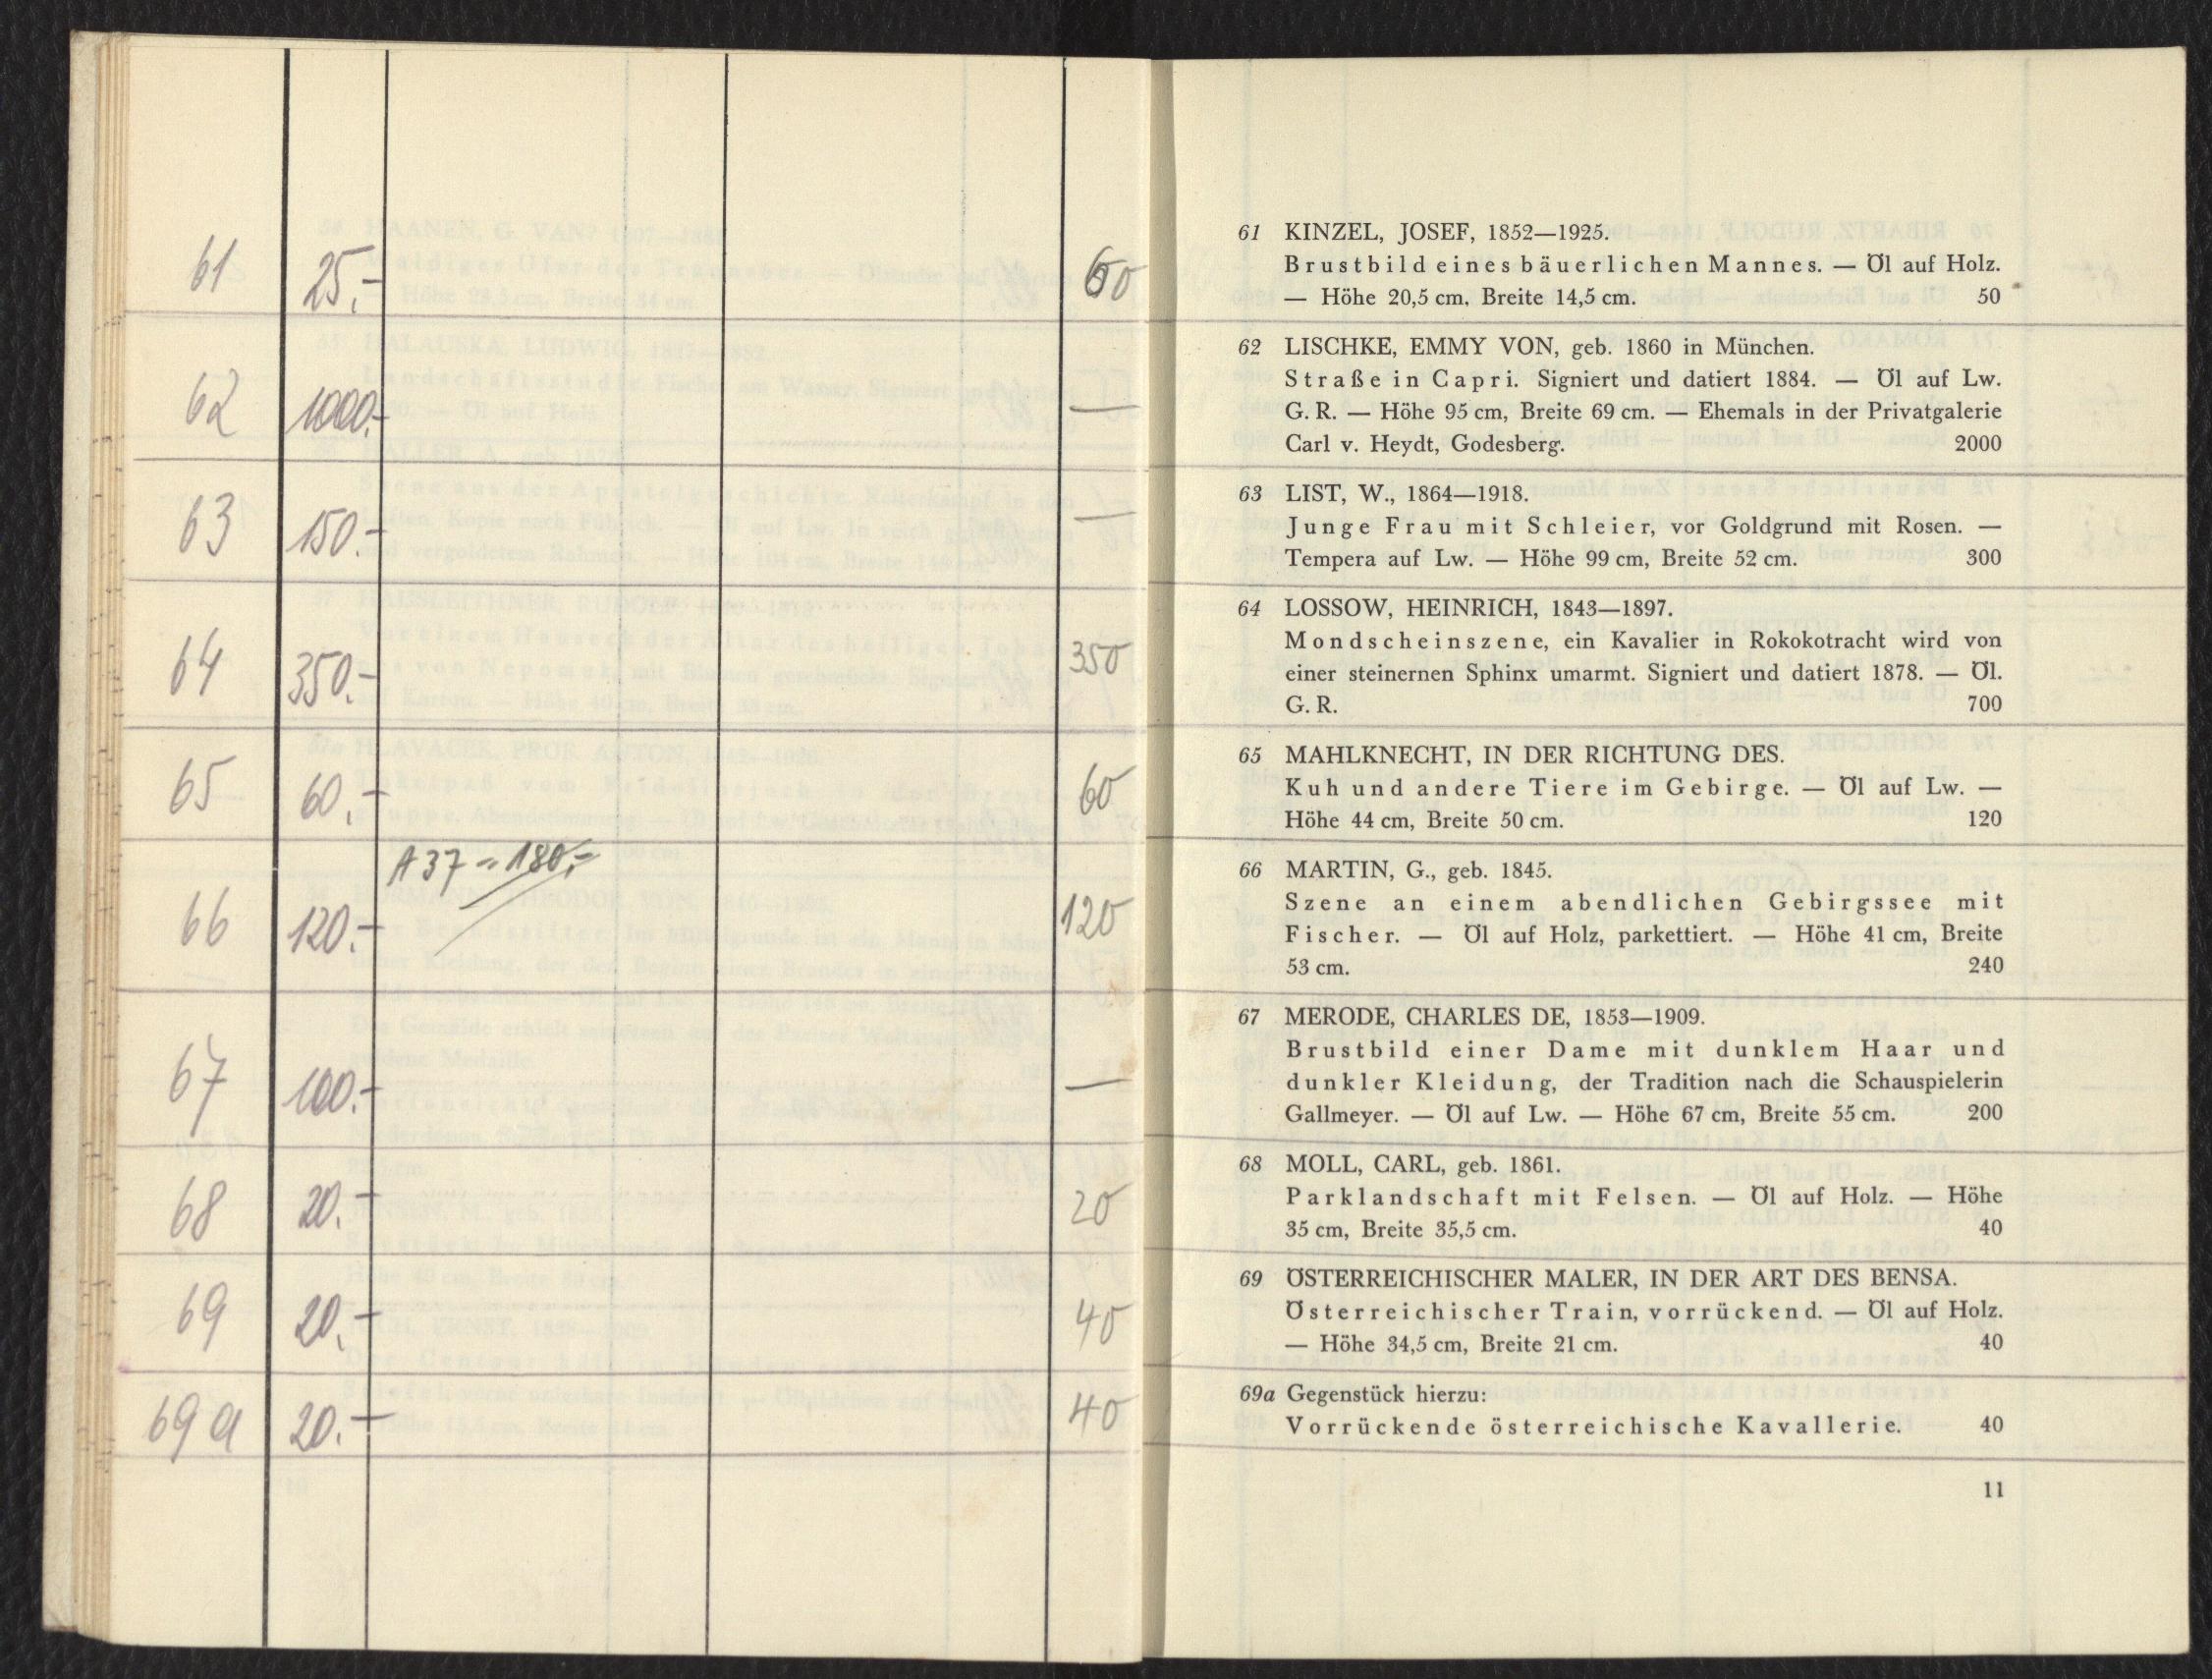 61 25.- 60
62 1000.- —
63 150.- —
64 350.- 350
65 60.- 60
A 37 = 180.-
66 120.- 120
67 100.- —
68 20.- 20
69 20.- 40
69 a 20.- 40
61 KINZEL, JOSEF, 1852—1925.
Brustbild eines bäuerlichen Mannes. — Öl auf Holz.
— Höhe 20,5 cm, Breite 14,5 cm. 50
62 LISCHKE, EMMY VON, geb. 1860 in München.
Straße in Capri. Signiert und datiert 1884. — Öl auf Lw.
G. R. — Höhe 95 cm, Breite 69 cm. — Ehemals in der Privatgalerie
Carl v. Heydt, Godesberg. 2000
63 LIST, W., 1864—1918.
Junge Frau mit Schleier, vor Goldgrund mit Rosen. —
Tempera auf Lw. — Höhe 99 cm, Breite 52 cm. 300
64 LOSSOW, HEINRICH, 1843—1897.
Mondscheinszene, ein Kavalier in Rokokotracht wird von
einer steinernen Sphinx umarmt. Signiert und datiert 1878. — Öl.
G. R. 700
65 MAHLKNECHT, IN DER RICHTUNG DES.
Kuh und andere Tiere im Gebirge. — Öl auf Lw. —
Höhe 44 cm, Breite 50 cm. 120
66 MARTIN, G., geb. 1845.
Szene an einem abendlichen Gebirgssee mit
Fischer. — Öl auf Holz, parkettiert. — Höhe 41 cm, Breite
53 cm. 240
67 MERODE, CHARLES DE, 1853—1909.
Brustbild einer Dame mit dunklem Haar und
dunkler Kleidung, der Tradition nach die Schauspielerin
Gallmeyer. — Öl auf Lw. — Höhe 67 cm, Breite 55 cm. 200
68 MOLL, CARL, geb. 1861.
Parklandschaft mit Felsen. — Öl auf Holz. — Höhe
35 cm, Breite 35,5 cm. 40
69 ÖSTERREICHISCHER MALER, IN DER ART DES BENSA.
Österreichischer Train, vorrückend. — Öl auf Holz.
— Höhe 34,5 cm, Breite 21 cm. 40
69a Gegenstück hierzu:
Vorrückende österreichische Kavallerie. 40
11